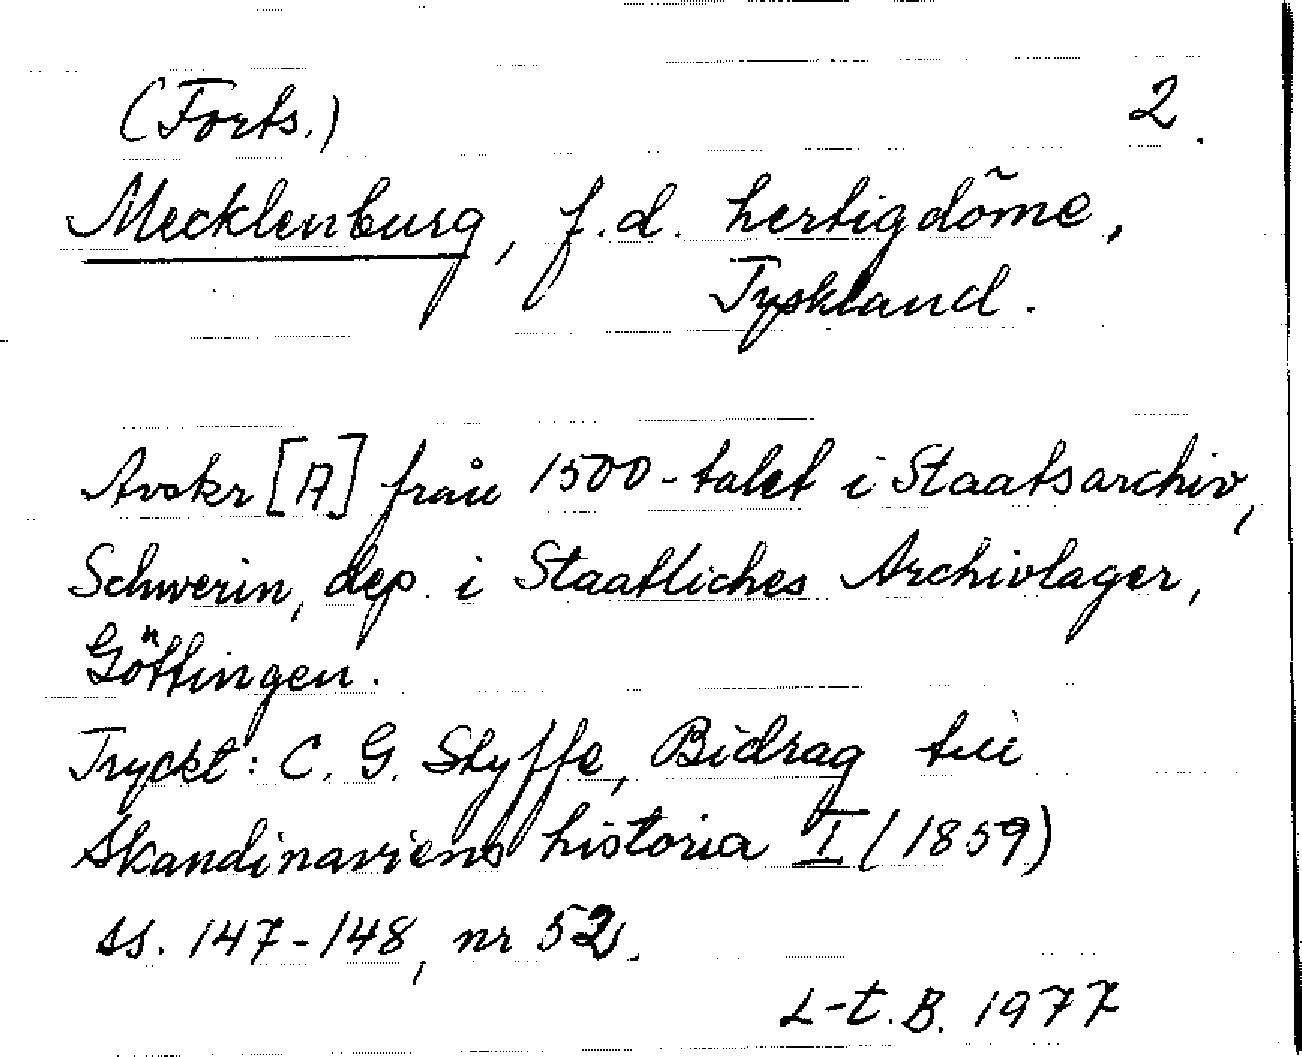 (Forts.) 2.
Mecklenburg, f.d. hertigdöme,
Tyskland.
Avskr [A] från 1500-talet i Staatsarchiv,
Schwerin, dep. i Staatliches Archivlager,
Göttingen.
Tryckt: C. G. Styffe, Bidrag till
Skandinaviens historia I (1859)
ss. 147-148, nr 52.
L-t. B. 1977